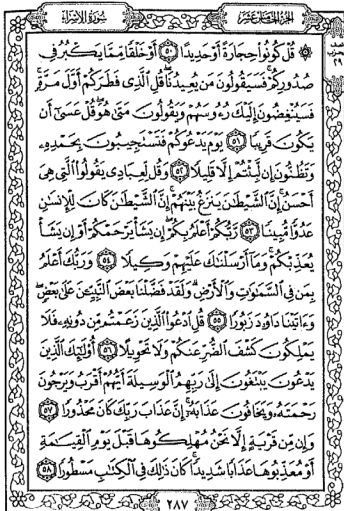 الجزء الخامس عشر
سورة الإسراء
۞ قُلْ كُونُوا۟ حِجَارَةً أَوْ حَدِيدًا ۝٥٠ أَوْ خَلْقًا مِّمَّا يَكْبُرُ فِى
صُدُورِكُمْ ۚ فَسَيَقُولُونَ مَن يُعِيدُنَا ۖ قُلِ ٱلَّذِى فَطَرَكُمْ أَوَّلَ مَرَّةٍ ۚ
فَسَيُنْغِضُونَ إِلَيْكَ رُءُوسَهُمْ وَيَقُولُونَ مَتَىٰ هُوَ ۖ قُلْ عَسَىٰٓ أَن
يَكُونَ قَرِيبًا ۝٥١ يَوْمَ يَدْعُوكُمْ فَتَسْتَجِيبُونَ بِحَمْدِهِۦ
وَتَظُنُّونَ إِن لَّبِثْتُمْ إِلَّا قَلِيلًا ۝٥٢ وَقُل لِّعِبَادِى يَقُولُوا۟ ٱلَّتِى هِىَ
أَحْسَنُ ۚ إِنَّ ٱلشَّيْطَٰنَ يَنزَغُ بَيْنَهُمْ ۚ إِنَّ ٱلشَّيْطَٰنَ كَانَ لِلْإِنسَٰنِ
عَدُوًّا مُّبِينًا ۝٥٣ رَّبُّكُمْ أَعْلَمُ بِكُمْ ۖ إِن يَشَأْ يَرْحَمْكُمْ أَوْ إِن يَشَأْ
يُعَذِّبْكُمْ ۚ وَمَآ أَرْسَلْنَٰكَ عَلَيْهِمْ وَكِيلًا ۝٥٤ وَرَبُّكَ أَعْلَمُ
بِمَن فِى ٱلسَّمَٰوَٰتِ وَٱلْأَرْضِ ۗ وَلَقَدْ فَضَّلْنَا بَعْضَ ٱلنَّبِيِّـۧنَ عَلَىٰ بَعْضٍ ۖ
وَءَاتَيْنَا دَاوُۥدَ زَبُورًا ۝٥٥ قُلِ ٱدْعُوا۟ ٱلَّذِينَ زَعَمْتُم مِّن دُونِهِۦ فَلَا
يَمْلِكُونَ كَشْفَ ٱلضُّرِّ عَنكُمْ وَلَا تَحْوِيلًا ۝٥٦ أُو۟لَٰٓئِكَ ٱلَّذِينَ
يَدْعُونَ يَبْتَغُونَ إِلَىٰ رَبِّهِمُ ٱلْوَسِيلَةَ أَيُّهُمْ أَقْرَبُ وَيَرْجُونَ
رَحْمَتَهُۥ وَيَخَافُونَ عَذَابَهُۥٓ ۚ إِنَّ عَذَابَ رَبِّكَ كَانَ مَحْذُورًا ۝٥٧
وَإِن مِّن قَرْيَةٍ إِلَّا نَحْنُ مُهْلِكُوهَا قَبْلَ يَوْمِ ٱلْقِيَٰمَةِ
أَوْ مُعَذِّبُوهَا عَذَابًا شَدِيدًا ۚ كَانَ ذَٰلِكَ فِى ٱلْكِتَٰبِ مَسْطُورًا ۝٥٨
٢٨٧